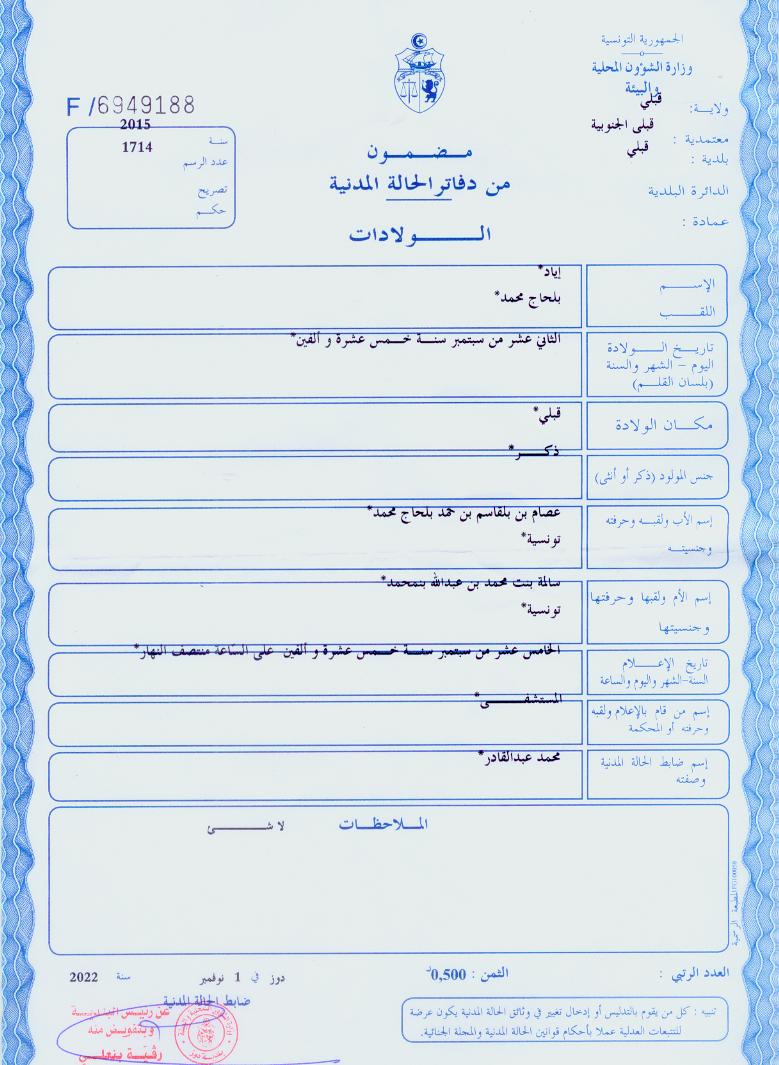 الجمهورية التونسية
وزارة الشؤون المحلية
والبيئة
ولاية: قبلي
معتمدية : قبلى الجنوبية
بلدية : قبلي
الدائرة البلدية
عمادة :
F /6949188
سنة 2015
عدد الرسم 1714
تصريح
حكم
مضمون
من دفاتر الحالة المدنية
الولادات
الإسم إياد*
اللقب بلحاج محمد*
تاريخ الولادة الثاني عشر من سبتمبر سنة خمس عشرة و ألفين*
اليوم - الشهر والسنة
(بلسان القلم)
مكان الولادة قبلي*
جنس المولود (ذكر أو أنثى) ذكر*
إسم الأب ولقبه وحرفته عصام بن بلقاسم بن حمد بلحاج محمد*
وجنسيته تونسية*
إسم الأم ولقبها وحرفتها سالمة بنت محمد بن عبدالله بنمحمد*
وجنسيتها تونسية*
تاريخ الإعلام الخامس عشر من سبتمبر سنة خمس عشرة و ألفين على الساعة منتصف النهار*
السنة-الشهر واليوم والساعة
إسم من قام بالإعلام ولقبه المستشفى*
وحرفته أو المحكمة
إسم ضابط الحالة المدنية محمد عبدالقادر*
وصفته
الملاحظات لا شئ
المطبعة الرسمية
العدد الرتبي :
الثمن : 0,500د
دوز في 1 نوفمبر سنة 2022
ضابط الحالة المدنية
عن رئيس البلدية
وبتفويض منه
رقية بنعلي
تنبيه : كل من يقوم بالتدليس أو إدخال تغيير في وثائق الحالة المدنية يكون عرضة
للتتبعات العدلية عملا بأحكام قوانين الحالة المدنية والمجلة الجنائية.